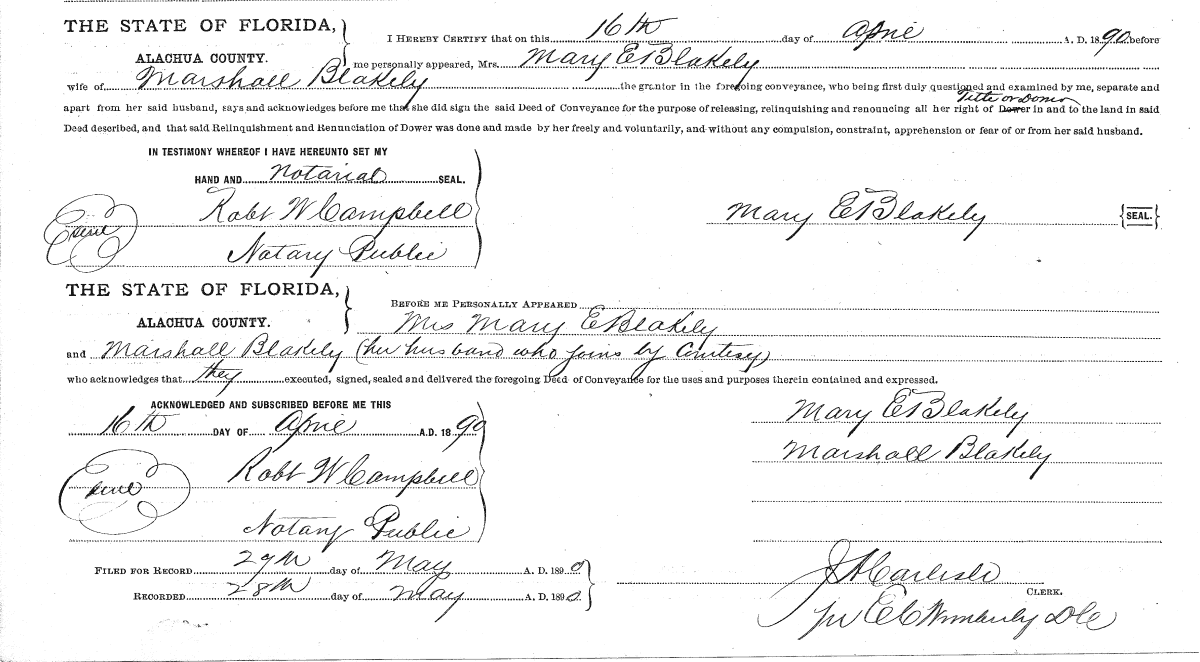 THE STATE OF FLORIDA,
ALACHUA COUNTY.
I HEREBY CERTIFY that on this 16th day of April A. D. 1890 before
me personally appeared, Mrs. Mary E Blakely
wife of Marshall Blakely the grantor in the foregoing conveyance, who being first duly questioned and examined by me, separate and
Title or Dower
apart from her said husband, says and acknowledges before me that she did sign the said Deed of Conveyance for the purpose of releasing, relinquishing and renouncing all her right of Dower in and to the land in said
Deed described, and that said Relinquishment and Renunciation of Dower was done and made by her freely and voluntarily, and without any compulsion, constraint, apprehension or fear of or from her said husband.
IN TESTIMONY WHEREOF I HAVE HEREUNTO SET MY
HAND AND Notarial SEAL.
Robt W Campbell
Seal
Notary Public
Mary E Blakely SEAL.
THE STATE OF FLORIDA,
ALACHUA COUNTY.
BEFORE ME PERSONALLY APPEARED
Mrs Mary E Blakely
and Marshall Blakely (her husband who joins by Courtesy)
who acknowledges that they executed, signed, sealed and delivered the foregoing Deed of Conveyance for the uses and purposes therein contained and expressed.
ACKNOWLEDGED AND SUBSCRIBED BEFORE ME THIS
16th DAY OF April A.D. 1890
Robt W Campbell
Seal
Notary Public
Mary E Blakely
Marshall Blakely
FILED FOR RECORD 27th day of May A. D. 1890
RECORDED 28th day of May A. D. 1890.
J A Carlisle
CLERK.
pr E C Wimberly DC